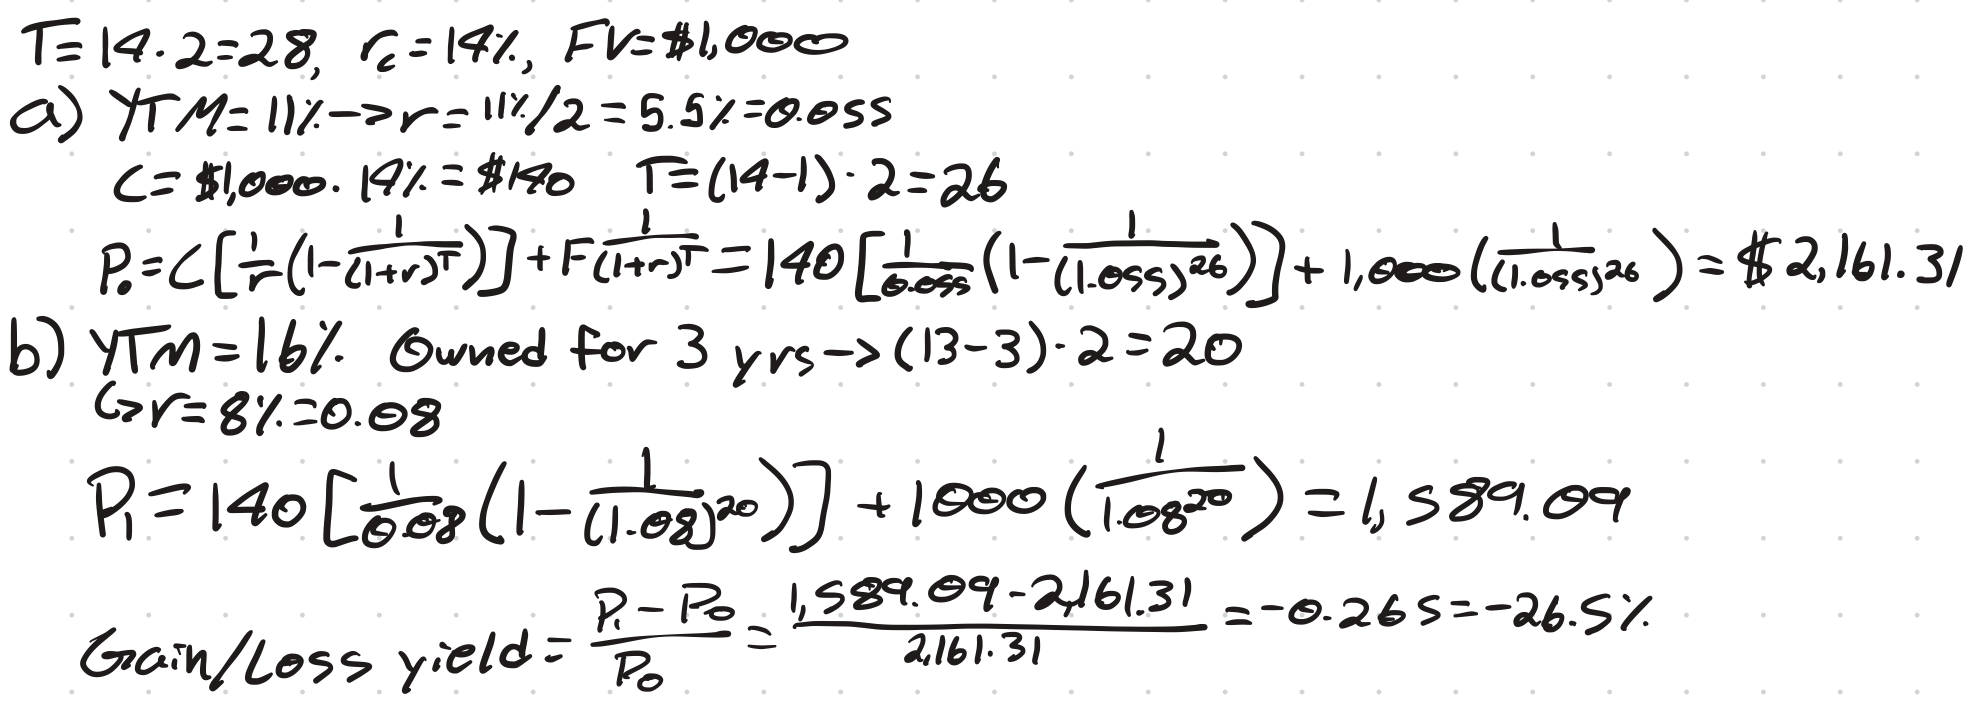 T=14·2=28, r_c=14%, FV=$1,000
a) YTM=11%->r=11%/2=5.5%=0.055
C=$1,000·14%=$140 T=(14-1)·2=26
P_0=C[1/r(1-1/(1+r)^T)]+F 1/(1+r)^T=140[1/0.055(1-1/(1.055)^26)]+1,000(1/(1.055)^26)=$2,161.31
b) YTM=16% Owned for 3 yrs->(13-3)·2=20
↳r=8%=0.08
P_1=140[1/0.08(1-1/(1.08)^20)]+1000(1/1.08^20)=1,589.09
Gain/Loss yield=(P_1-P_0)/P_0=(1,589.09-2,161.31)/2,161.31=-0.265=-26.5%